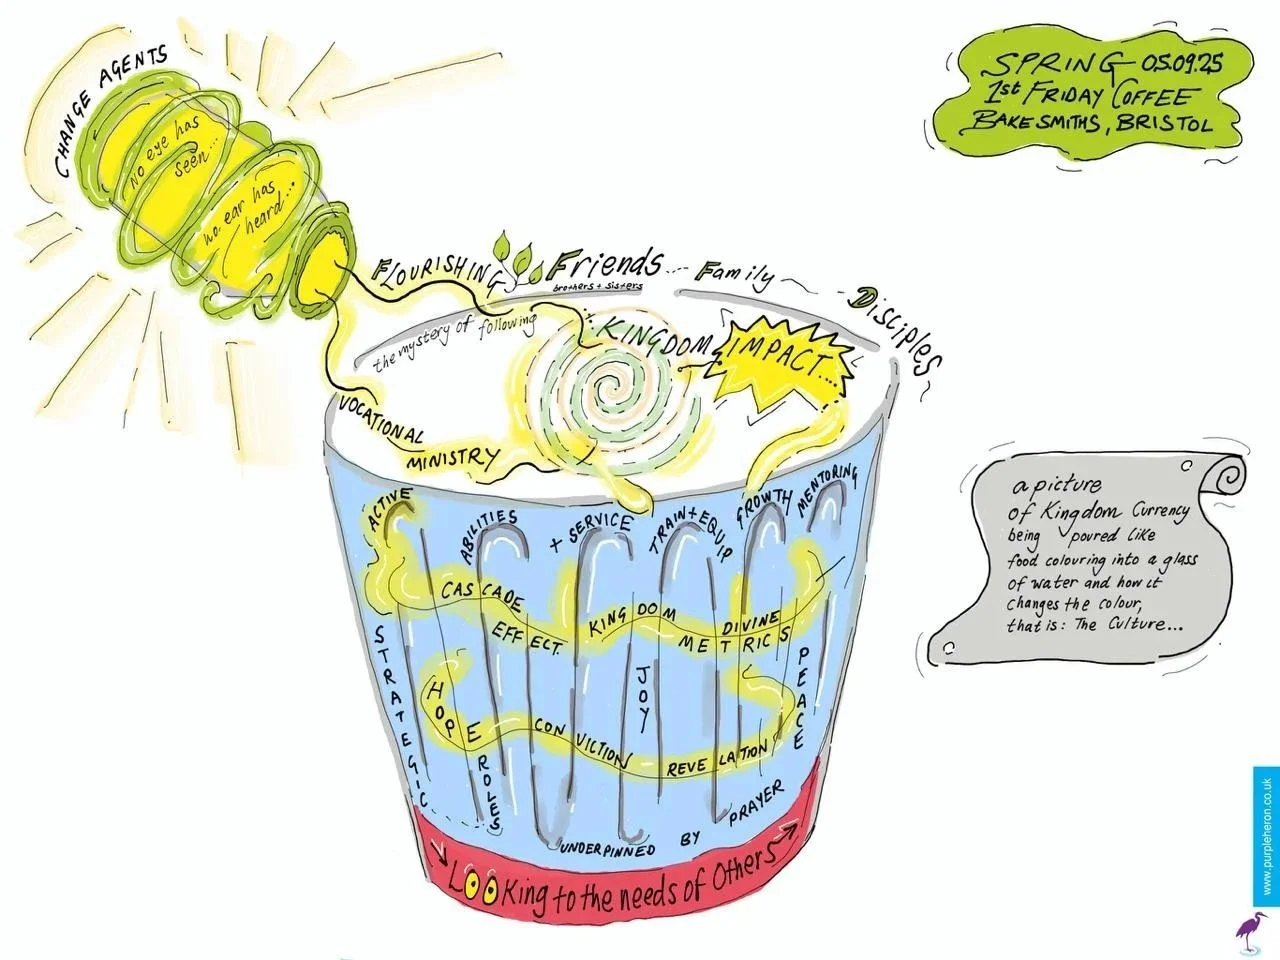 CHANGE AGENTS
No eye has
seen...
no ear has
heard...
SPRING 05.09.25
1st FRIDAY COFFEE
BAKESMITHS, BRISTOL
FLOURISHING
Friends
brothers + sisters
Family
Disciples
the mystery of following
KINGDOM
IMPACT....
VOCATIONAL
MINISTRY
ACTIVE
ABILITIES
+ SERVICE
TRAIN + EQUIP
GROWTH
MENTORING
CASCADE
EFFECT.
KINGDOM
DIVINE
METRICS
STRATEGIC
HOPE
ROLES
JOY
PEACE
CONVICTION
REVELATION
UNDERPINNED BY PRAYER
LOOKing to the needs of Others
a picture
of Kingdom Currency
being poured like
food colouring into a glass
of water and how it
changes the colour,
that is: The Culture...
www.purpleheron.co.uk